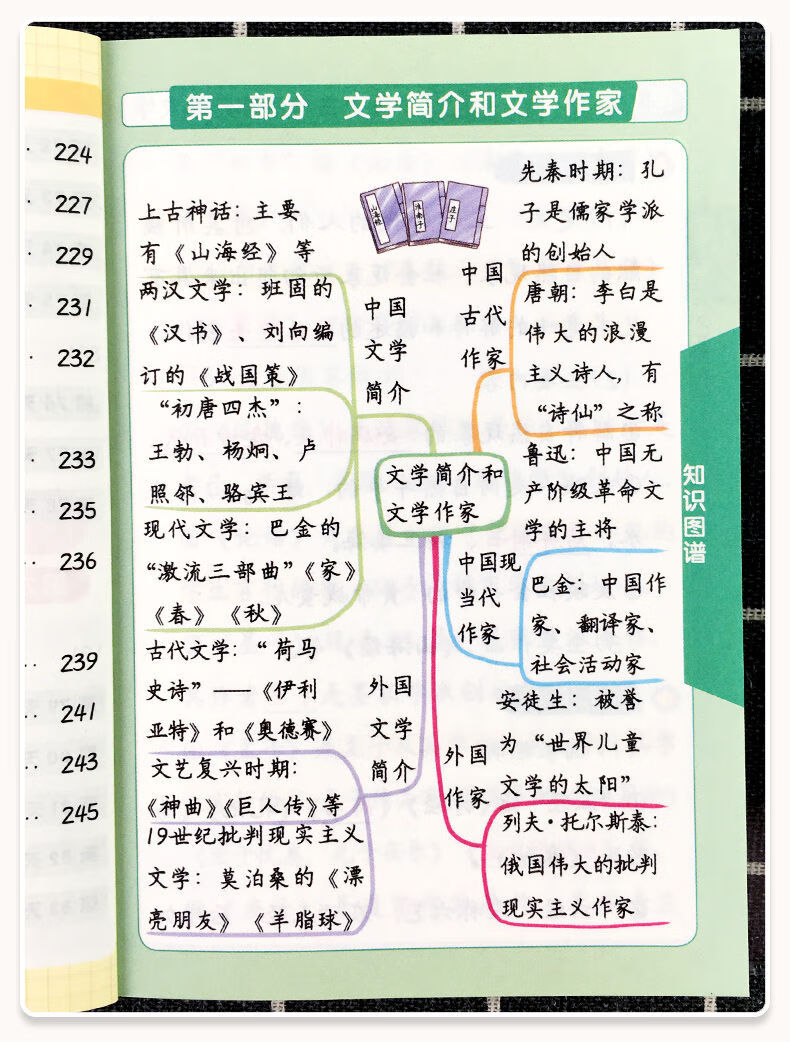 第一部分 文学简介和文学作家
224
227
229
231
232
233
235
236
239
241
243
245
上古神话：主要
有《山海经》等
两汉文学：班固的
《汉书》、刘向编
订的《战国策》
“初唐四杰”：
王勃、杨炯、卢
照邻、骆宾王
现代文学：巴金的
“激流三部曲”《家》
《春》《秋》
中国
文学
简介
古代文学：“荷马
史诗”——《伊利
亚特》和《奥德赛》
文艺复兴时期：
《神曲》《巨人传》等
19世纪批判现实主义
文学：莫泊桑的《漂
亮朋友》《羊脂球》
外国
文学
简介
山海经
淮南子
庄子
文学简介和
文学作家
先秦时期：孔
子是儒家学派
的创始人
唐朝：李白是
伟大的浪漫
主义诗人，有
“诗仙”之称
中国
古代
作家
鲁迅：中国无
产阶级革命文
学的主将
巴金：中国作
家、翻译家、
社会活动家
中国现
当代
作家
安徒生：被誉
为“世界儿童
文学的太阳”
列夫·托尔斯泰：
俄国伟大的批判
现实主义作家
外国
作家
知识图谱